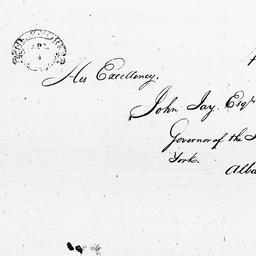 His Excellency,
John Jay. Esqr
Governor of the
York.
Alba